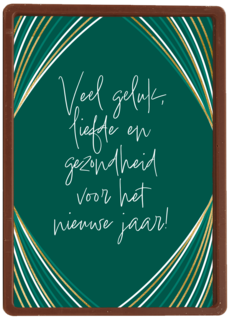 Veel geluk,
liefde en
gezondheid
voor het
nieuwe jaar!